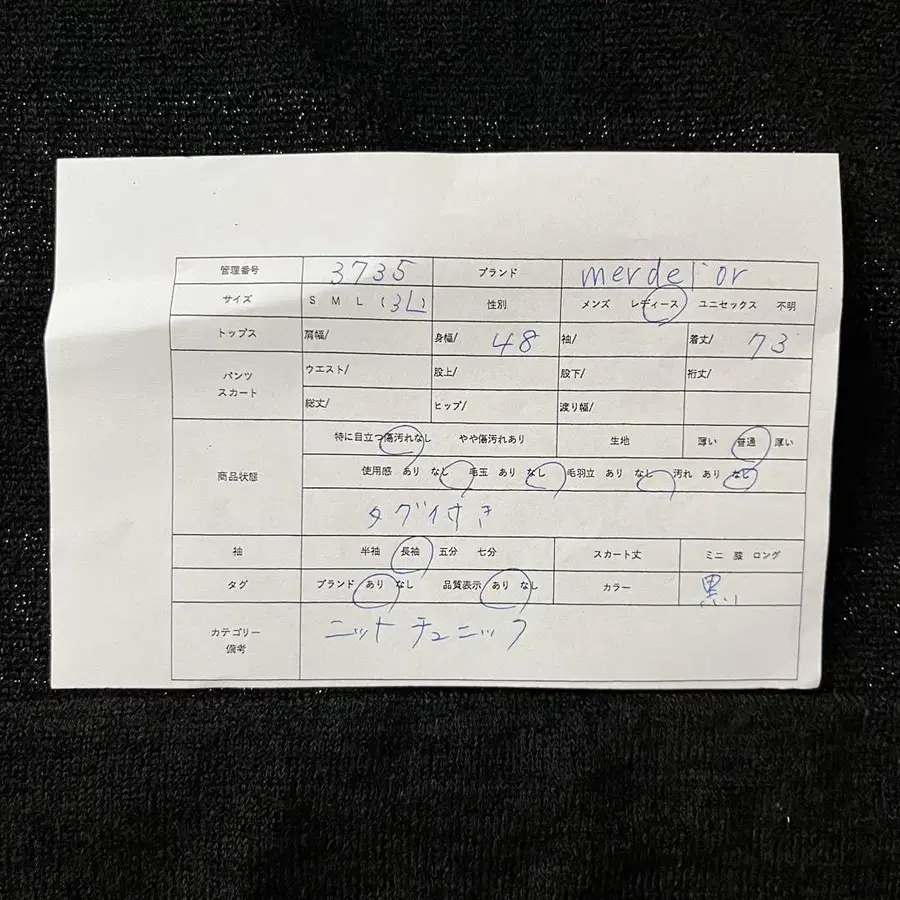 管理番号 3735 ブランド merdelor
サイズ S M L (3L) 性別 メンズ レディース ユニセックス 不明
トップス 肩幅/ 身幅/ 48 袖/ 着丈/ 73
パンツ スカート ウエスト/ 股上/ 股下/ 裄丈/
総丈/ ヒップ/ 渡り幅/
商品状態 特に目立つ傷汚れなし やや傷汚れあり 生地 薄い 普通 厚い
使用感 あり なし 毛玉 あり なし 毛羽立 あり なし 汚れ あり なし
タグ付き
袖 半袖 長袖 五分 七分 スカート丈 ミニ 膝 ロング
タグ ブランド あり なし 品質表示 あり なし カラー 黒
カテゴリー 備考 ニットチュニック